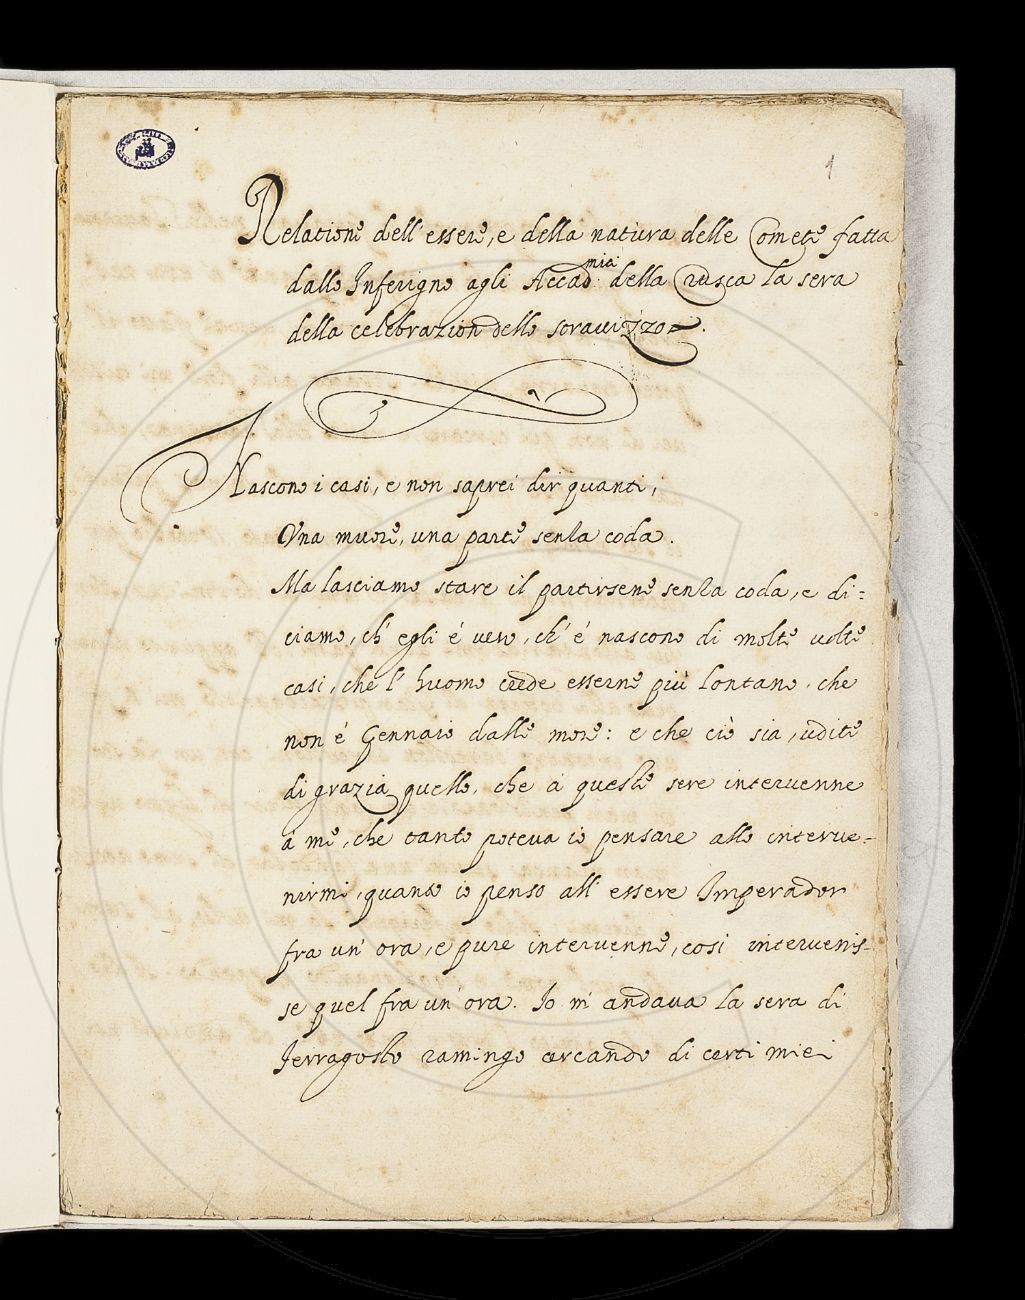 1
Relatione dell'essere, e della natura delle Comete fatta
dallo Inferigno agli Accad.mia della Crusca la sera
della celebrazion dello stravizzo.
Nascono i casi, e non saprei dir quanti,
Una muore, una parte senza coda.
Ma lasciamo stare il partirsene senza coda, e di=
ciamo, ch'egli é vero, ch'é nascono di molte volte
casi, che l'huomo crede esserne più lontano, che
non é Gennaio dalle more: e che ciò sia, udite
di grazia quello, che a queste sere intervenne
á me, che tanto poteva io pensare allo interve=
nirmi, quanto io penso all'essere Imperador
fra un'ora, e pure intervenne, cosi intervenis=
se quel fra un'ora. Io m'andava la sera di
Ferragosto ramingo cercando di certi miei